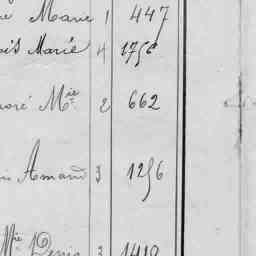 Marie 1 447
Marie 4 1756
oré Mie 2 662
Amand 3 1256
Mie Denis 3 1419